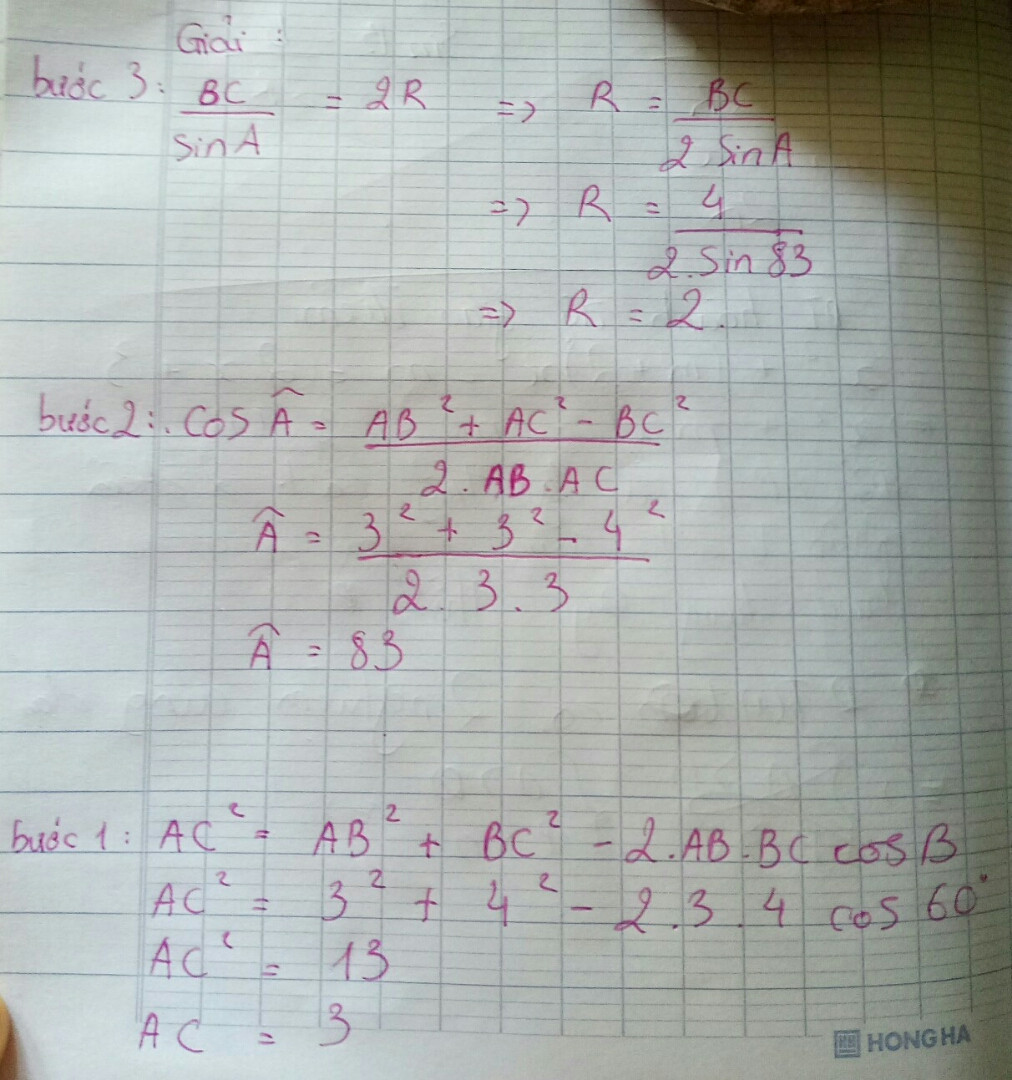 Giải :
bước 3: BC / sin A = 2R => R = BC / 2 Sin A
=> R = 4 / 2. Sin 83
=> R = 2.
bước 2: . Cos Â = AB² + AC² - BC² / 2. AB . AC
Â = 3² + 3² - 4² / 2. 3. 3
Â = 83
bước 1: AC² = AB² + BC² - 2. AB. BC cos B
AC² = 3² + 4² - 2.3.4 cos 60°
AC² = 13
AC = 3
HONG HA